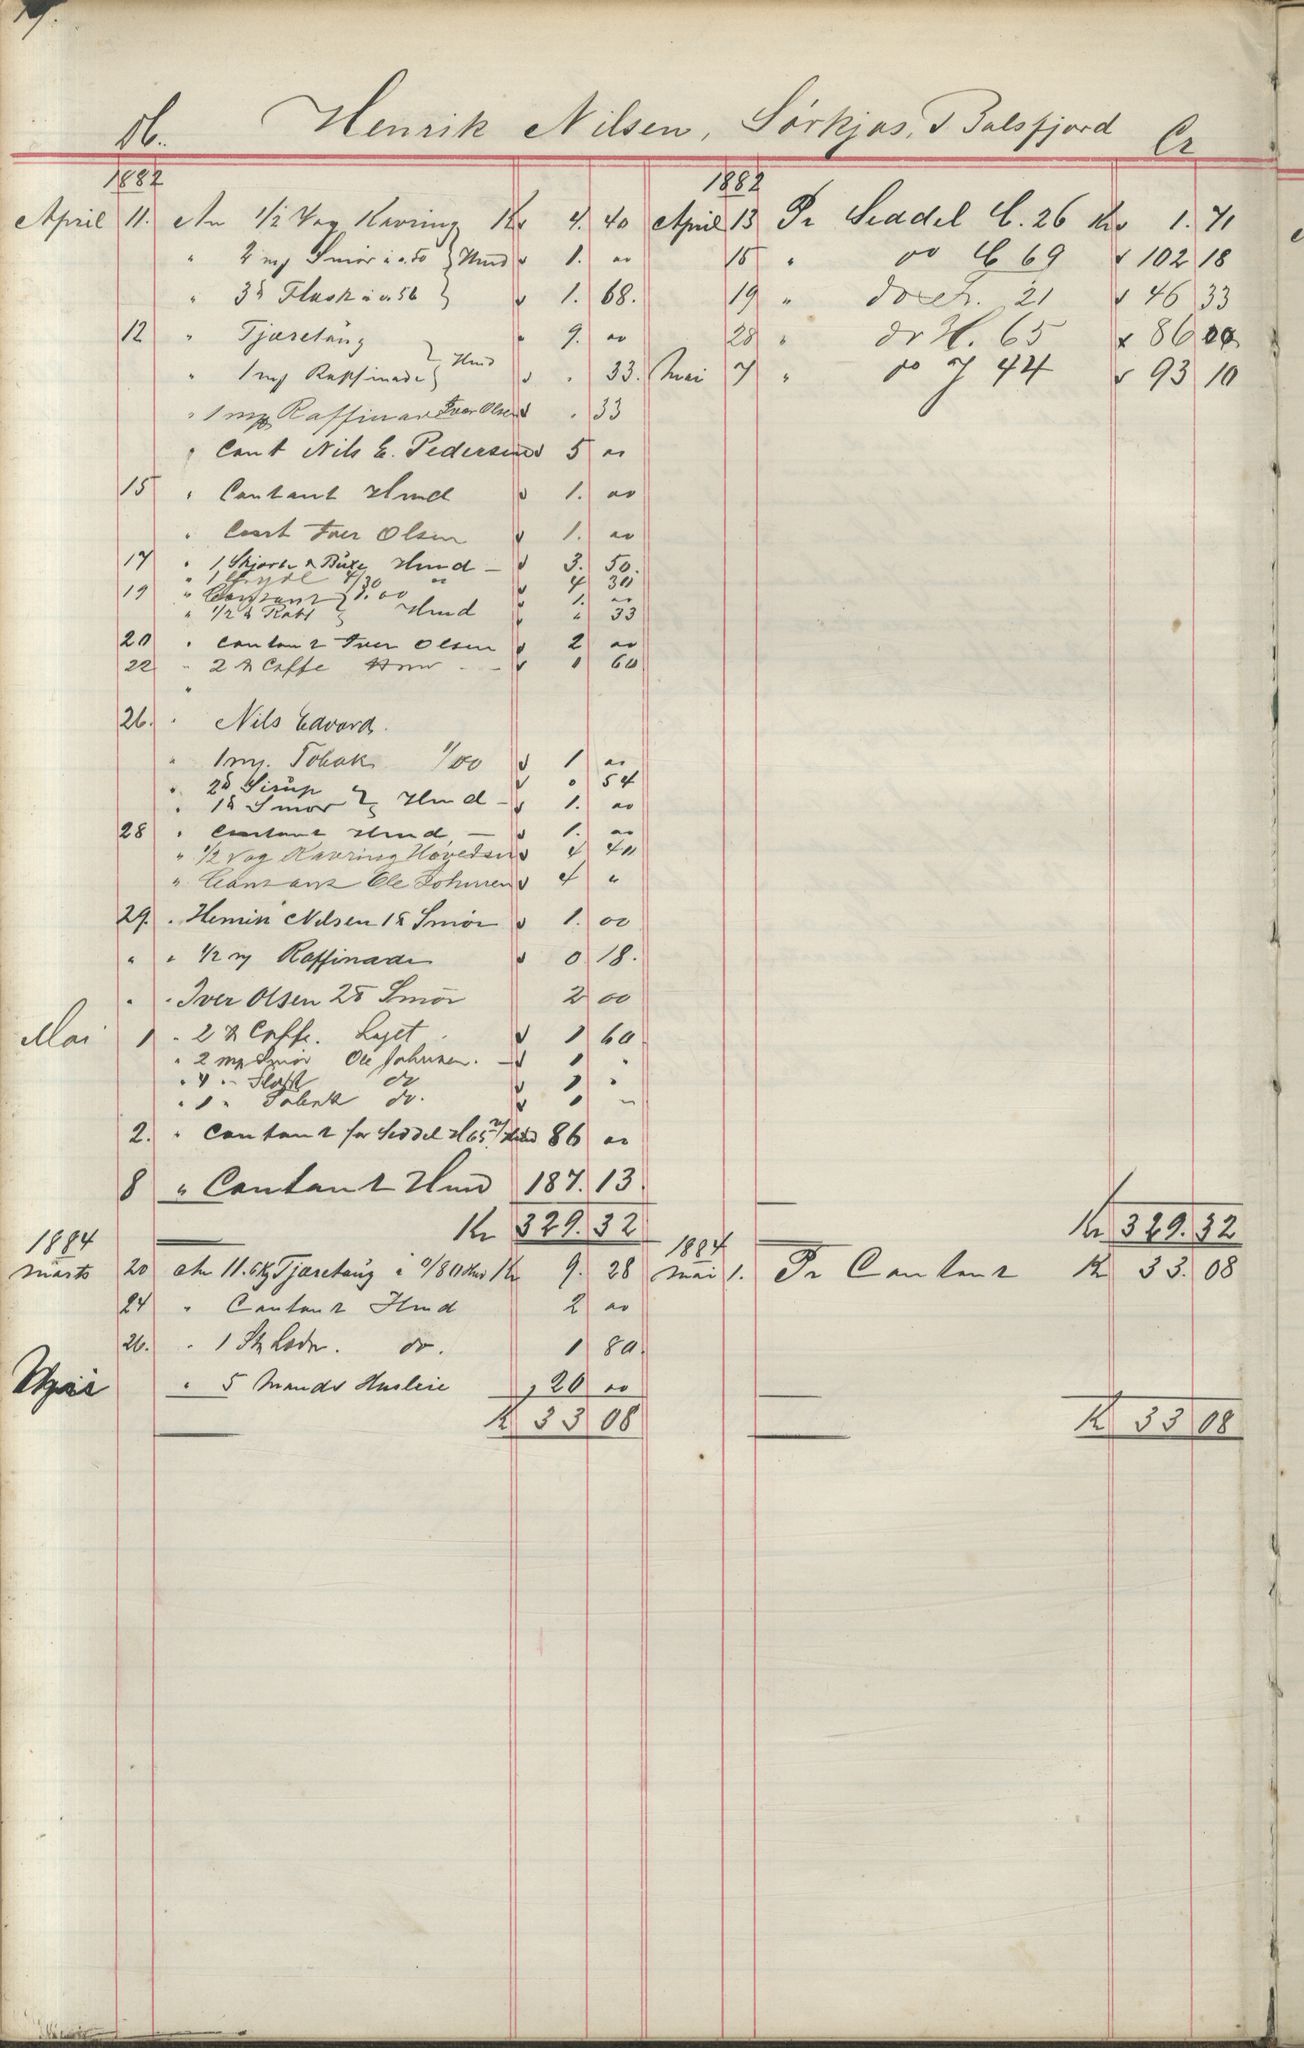 Db. Henrik Nilsen, Sörkjos, Balsfjord Cr
1882
April 11. An 1/2 Vog Kavring Kr 4. 40
" 2 my Smör à 0.50 } Hmd 1. 00
" 3 ℔ Flesk à 0.56 } 1. 68.
12 " Tjæretaug } Hmd 9. 00
" 1 my Raffinade } " 33.
" 1 my Raffinade Iver Olsen " 33
" Cont Nils E. Pedersen 5 00
15 " Contant Hmd 1. 00
" Cont Iver Olsen 1. 00
17 " 1 Skjorte & Buxe Hmd – 3. 50.
" 1 4/30 " 4 30
19 " Contant } 1.00 1. 00
" 1/2 ℔ } Hmd " 33
20 " Contant Iver Olsen 2 00
22 " 2 ℔ Caffe Hmd – – 1 60
"
26. " Nils Edvard
" 1 my. Tobak 1/00 1 00
" 2 ℔ Sirup } 0 54
" 1 ℔ Smör } Hmd – 1. 00
28 " Contant Hmd – 1. 00
" 1/2 Vog Kavring Hovedsen 4 40
" Contant Ole Johnsen 4 "
29. " Henrik Nilsen 1 ℔ Smör 1. 00
" " 1/2 my Raffinade 0 18.
" " Iver Olsen 2 ℔ Smör 2 00
Mai 1 " 2 ℔ Caffe. Laget 1 60
" 2 my Smör Ole Johnsen. – 1 "
" 4 " Flesk do 1 "
" 1 " Tobak do. 1 "
2. " Contant for Seddel H 65 Hmd 86 00
8 " Contant Hmd 187. 13.
Kr 329. 32
1884
Marts 20 An 11.6 Kg Tjæretaug à 0/80 Hmd Kr 9. 28
24 " Contant Hmd 2 00
26. " 1 Sk Læder. do. 1 80.
" 5 Mands Husleie 20 00
K 33 08
1882
April 13 Pr Seddel C. 26 Kr 1. 71
15 " do C 69 102 18
19 " do 21 46 33
28 " do H. 65 86 00
Mai 7 " do J 44 93 10
Kr 329. 32
1884
Mai 1. Pr Contant Kr 33. 08
K 33 08